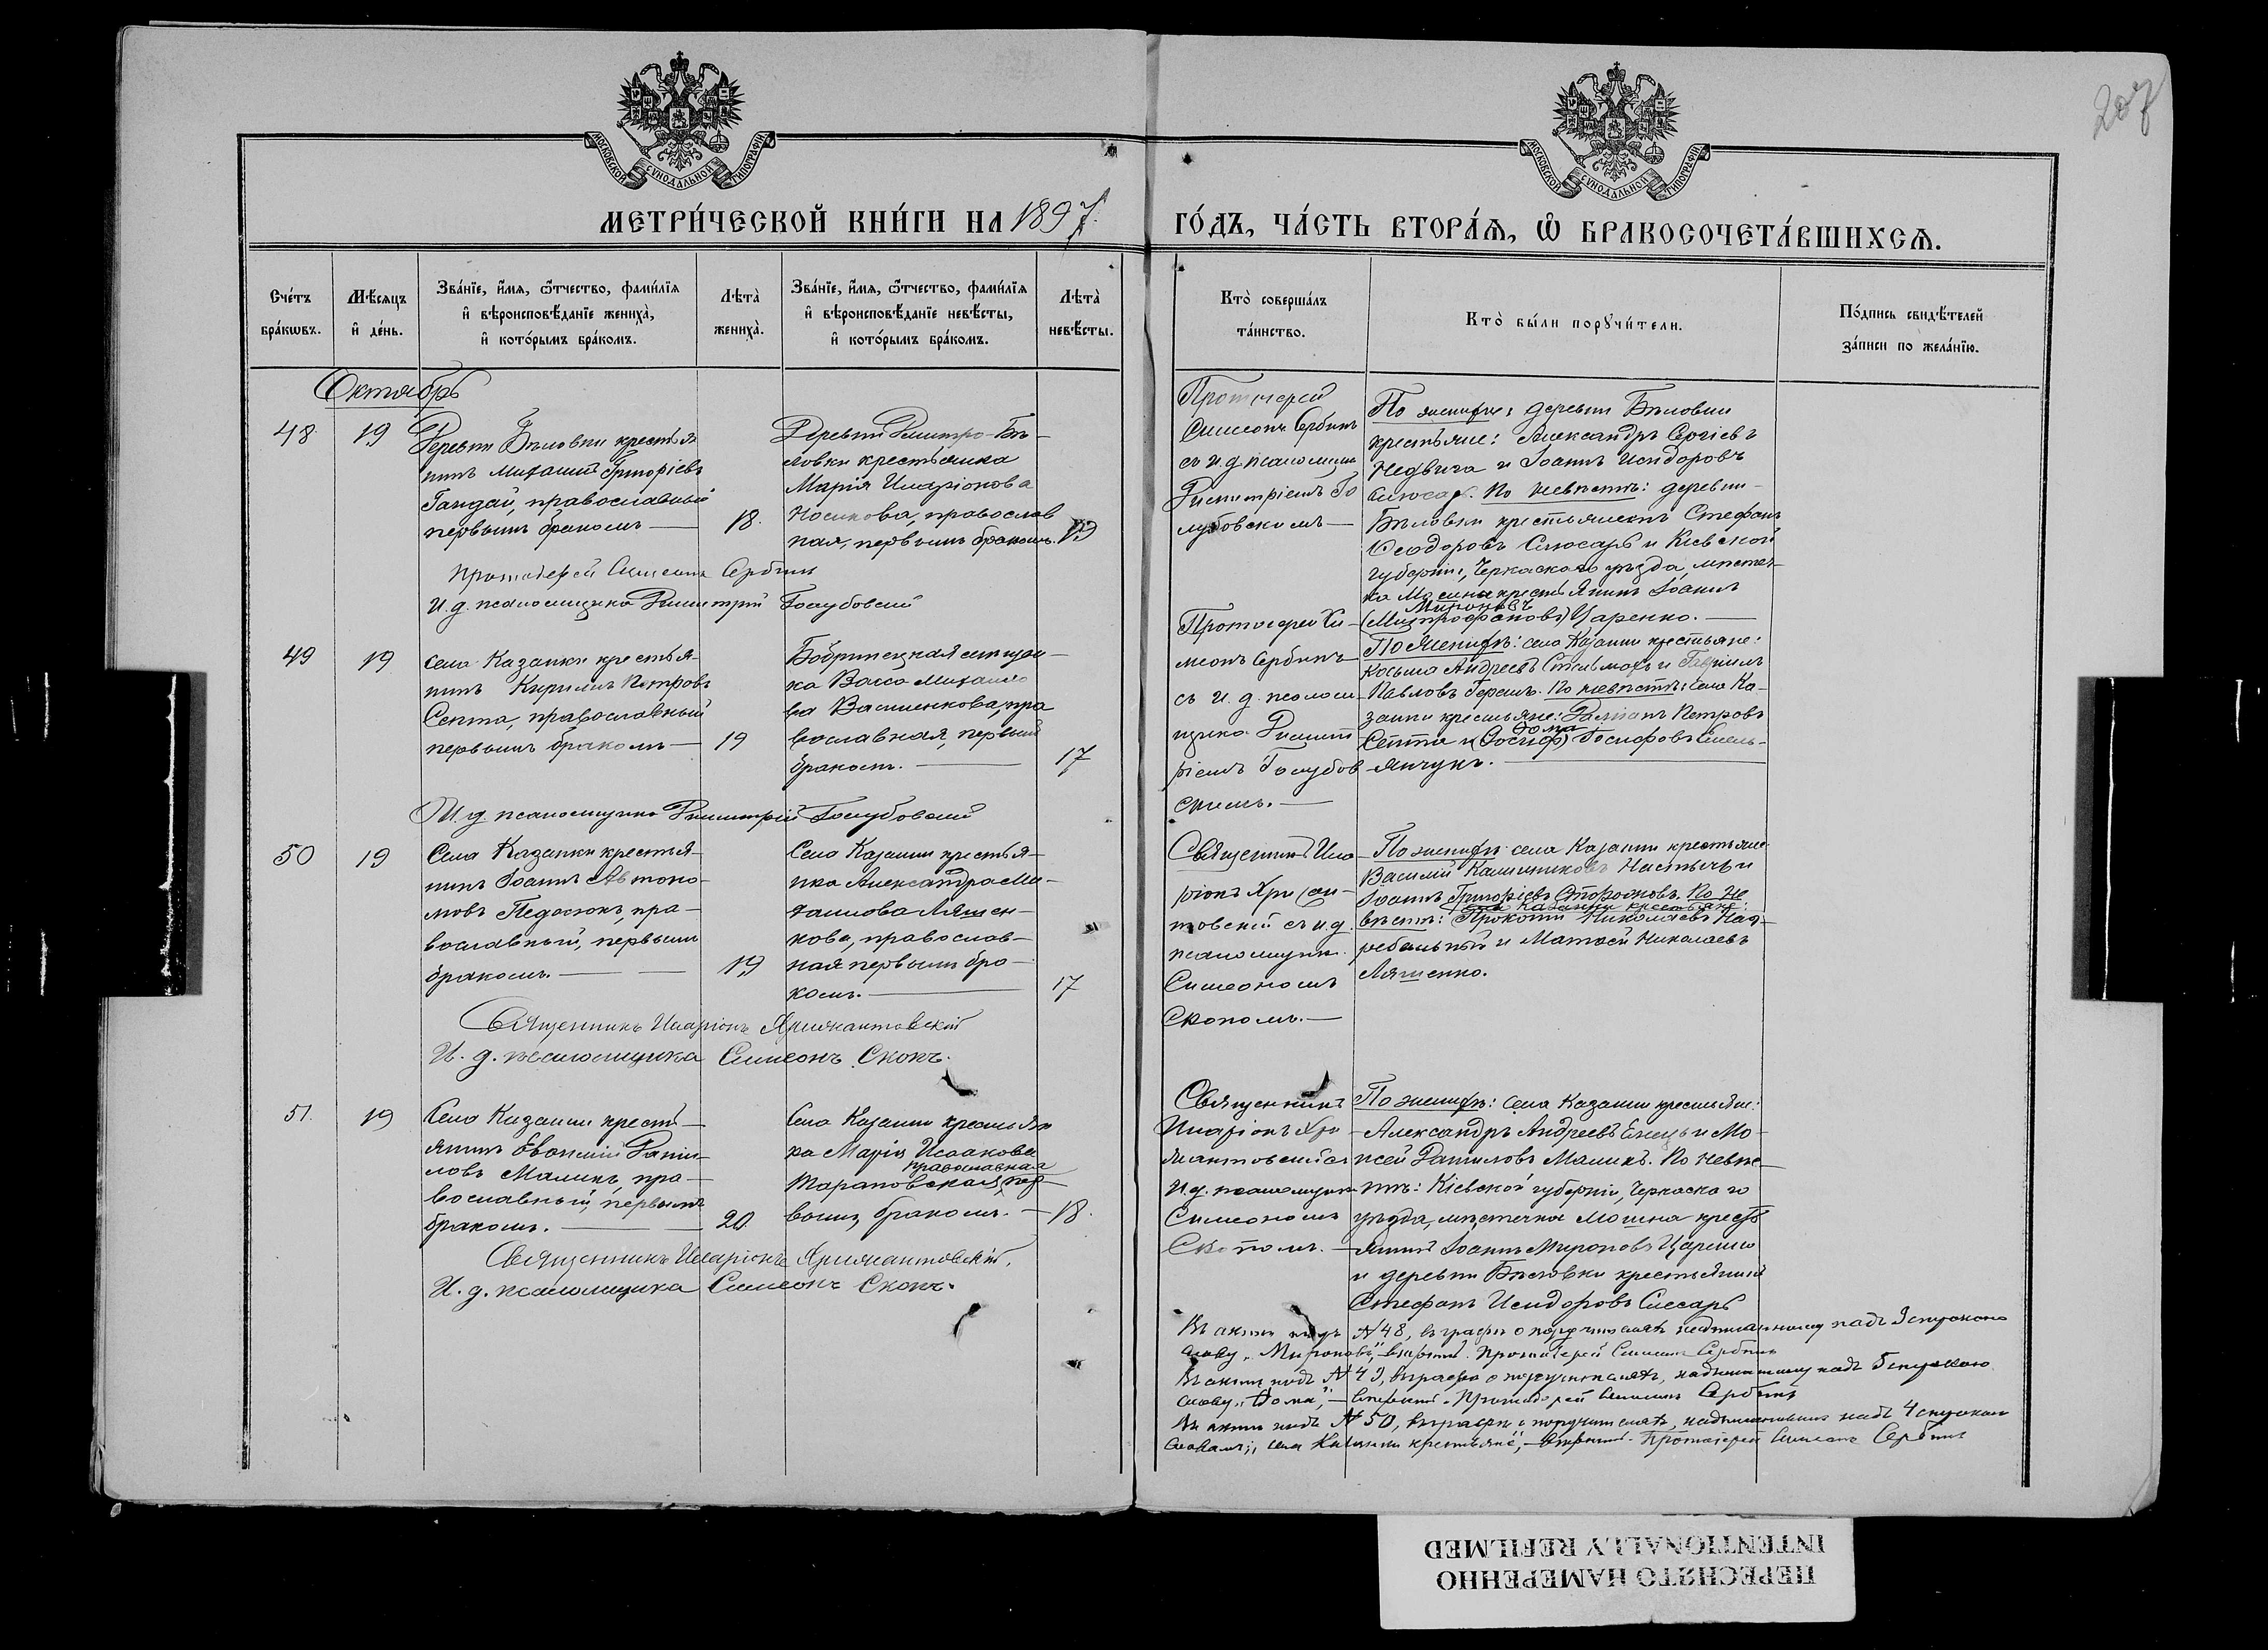 207
МОСКОВСКОЙ СУНОДАЛЬНОЙ ТИПОГРАФІИ
МОСКОВСКОЙ СУНОДАЛЬНОЙ ТИПОГРАФІИ
МЕТРИ́ЧЕСКОЙ КНИ́ГИ НА 1897.
ГО́ДЪ, ЧА́СТЬ ВТОРА́Ѧ, Ѽ БРАКОСОЧЕТА́ВШИХСѦ.
Сче́тъ бра́кѡвъ.
Мѣ́сяцъ и҆ де́нь.
Зва́нїе, и҆́мя, ѻ҆́тчество, фами́лїя
и҆ вѣроисповѣ́данїе жениха̀,
и҆ кото́рымъ бра́комъ.
Лѣта̀ жениха̀.
Зва́нїе, и҆́мя, ѻ҆́тчество, фами́лїя
и҆ вѣроисповѣ́данїе невѣ́сты,
и҆ кото́рымъ бра́комъ.
Лѣта̀ невѣ́сты.
Кто̀ соверша́лъ
та́инство.
Кто̀ бы́ли порꙋчи́тели.
По́дпись свидѣ́телей
за́писи по жела́нїю.
Октябрь
48
19
Деревни Бѣловки крестья
нинъ Михаилъ Григоріевъ
Гандай, православный
первымъ бракомъ —
18.
Деревни Димитро-Бѣ-
ловки крестьянка
Марія Иларіонова
Носикова, православ
ная, первымъ бракомъ.
19
Протоіерей
Симеонъ Сербинъ
съ и.д. псаломщи
Димитріемъ Го
лубовскимъ —
По женихѣ: деревни Бѣловки
крестьяне: Александръ Сергіевъ
Недвига и Іоаннъ Исидоровъ
Слюсарь. По невѣстѣ: деревни
Бѣловки крестьянинъ Стефанъ
Ѳеодоровъ Слюсарь и Кіевской
губерніи, Черкаскаго уѣзда, мѣстеч-
ка Мошна крестьянинъ Іоаннъ
Мироновъ
(Митрофановъ) Царенко. —
Протоіерей Симеонъ Сербинъ
И.д. псаломщика Димитрій Голубовскій
49
19
Села Казанки крестья-
нинъ Кириллъ Петровъ
Септа, православный
первымъ бракомъ —
19
Бобринецкая мѣщан-
ка Васса Михаило
ва Василенкова, пра
вославная, первымъ
бракомъ. —
17
Протоіерей Си-
меонъ Сербинъ
съ и.д. псалом-
щика Димит
ріемъ Голубов
скимъ. —
По женихѣ: села Казанки крестьяне:
Косьма Андреевъ Стельмахъ и Гавріилъ
Павловъ По невѣстѣ: села Ка-
занки крестьяне: Даміанъ Петровъ
Ѳома
Септа и (Іосифъ) Іосифовъ Емель-
янчукъ. —
И.д. псаломщика Димитрій Голубовскій
50
19
Села Казанки крестья-
нинъ Іоаннъ Автоно-
мовъ Педосюкъ, пра-
вославный, первымъ
бракомъ. —
19
Села Казанки крестья-
нка Александра Ми-
хаилова Ляшен-
кова, православ-
ная первымъ бра-
комъ. —
17
Священникъ Ила-
ріонъ Хрисан-
товскій съ и.д.
псаломщика
Симеономъ
Скопомъ. —
По женихѣ: села Казанки крестьяне
Василій Каллиниковъ и
Іоаннъ Григоріевъ По не
села Казанки крестьяне:
вѣстѣ: Прокопій Николаевъ
и Матѳей Николаевъ
Ляшенко.
Священникъ Иларіонъ Хрисантовскій
И.д. псаломщика Симеонъ Скопъ.
51.
19
Села Казанки кресть-
янинъ Евѳимій Дани-
ловъ Маликъ, пра-
вославный, первымъ
бракомъ. —
20.
Села Казанки крестьян
ка Марія Исаакова
православная
Тарановская, пер-
вымъ бракомъ. —
18.
Священникъ
Иларіонъ Хри
сантовскій съ
и.д. псаломщика
Симеономъ
Скопомъ. —
По женихѣ: Села Казанки крестьяне:
Александръ Андреевъ Емецъ и Мо-
исей Даниловъ Маликъ. По невѣс-
тѣ: Кіевской губерніи, Черкаскаго
уѣзда, мѣстечка Мошна кресть
янинъ Іоаннъ Мироновъ Царенко
и деревни Бѣловки крестьянинъ
Стефанъ Исидоровъ Слесарь
Священникъ Иларіонъ Хрисантовскій.
И.д. псаломщика Симеонъ Скопъ.
Въ актѣ подъ № 48, въ графѣ о поручителяхъ надписанному надъ 9 строкою
слову „Мироновъ", — вѣрить. Протоіерей Симеонъ Сербинъ
Въ актѣ подъ № 49, въ графѣ о поручителяхъ, надписанному надъ 5 строкою
слову „Ѳома", — вѣрить. Протоіерей Симеонъ Сербинъ
Въ актѣ подъ № 50, въ графѣ о поручителяхъ, надписаннымъ надъ 4 строкою
словамъ: „села Казанки крестьяне", — вѣрить. Протоіерей Симеонъ Сербинъ
ПЕРЕСНЯТО НАМЕРЕННО
INTENTIONALLY REFILMED